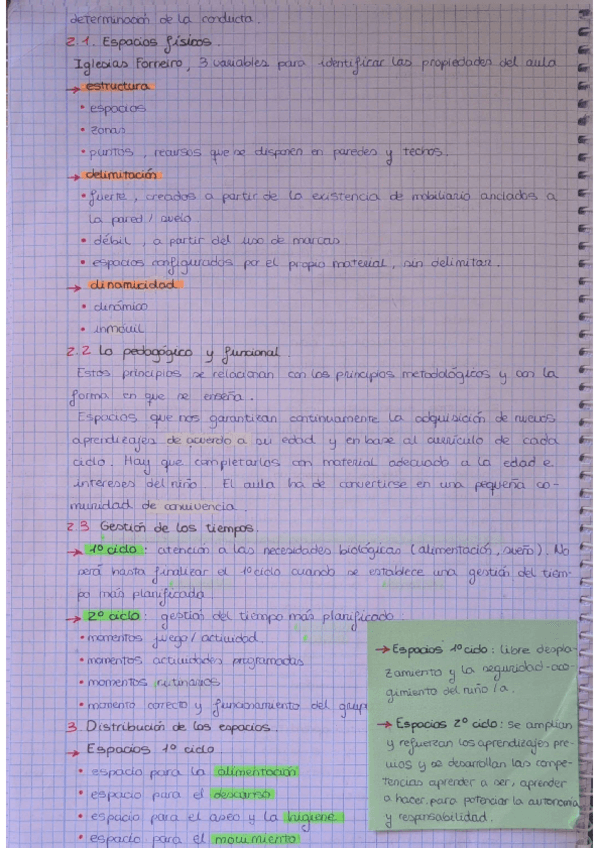 determinación de la conducta.
2.1. Espacios físicos.
Iglesias Forneiro, 3 variables para identificar las propiedades del aula
→ estructura
• espacios
• zonas
• puntos, recursos que se disponen en paredes y techos.
→ delimitación
• fuerte, creados a partir de la existencia de mobiliario anclados a
la pared / suelo.
• débil, a partir del uso de marcas
• espacios configurados por el propio material, sin delimitar.
→ dinamicidad
• dinámico
• inmóvil
2.2 Lo pedagógico y funcional.
Estos principios se relacionan con los principios metodológicos y con la
forma en que se enseña.
Espacios que nos garantizan continuamente la adquisición de nuevos
aprendizajes de acuerdo a su edad y en base al currículo de cada
ciclo. Hay que completarlos con material adecuado a la edad e
intereses del niño. El aula ha de convertirse en una pequeña co-
munidad de convivencia.
2.3 Gestión de los tiempos.
→ 1º ciclo: atención a las necesidades biológicas (alimentación, sueño). No
será hasta finalizar el 1º ciclo cuando se establece una gestión del tiem-
po más planificada
→ 2º ciclo: gestión del tiempo más planificado
• momentos juego / actividad.
• momentos actividades programadas
• momentos rutinarios
• momento correcto y funcionamiento del grup
3. Distribución de los espacios.
→ Espacios 1º ciclo
• espacio para la alimentación
• espacio para el descanso
• espacio para el aseo y la higiene
• espacio para el movimiento
→ Espacios 1º ciclo: libre despla-
zamiento y la seguridad-aco-
gimiento del niño/a.
→ Espacios 2º ciclo: se amplian
y refuerzan los aprendizajes pre-
vios y se desarrollan las compe-
tencias aprender a ser, aprender
a hacer, para potenciar la autonomía
y responsabilidad.